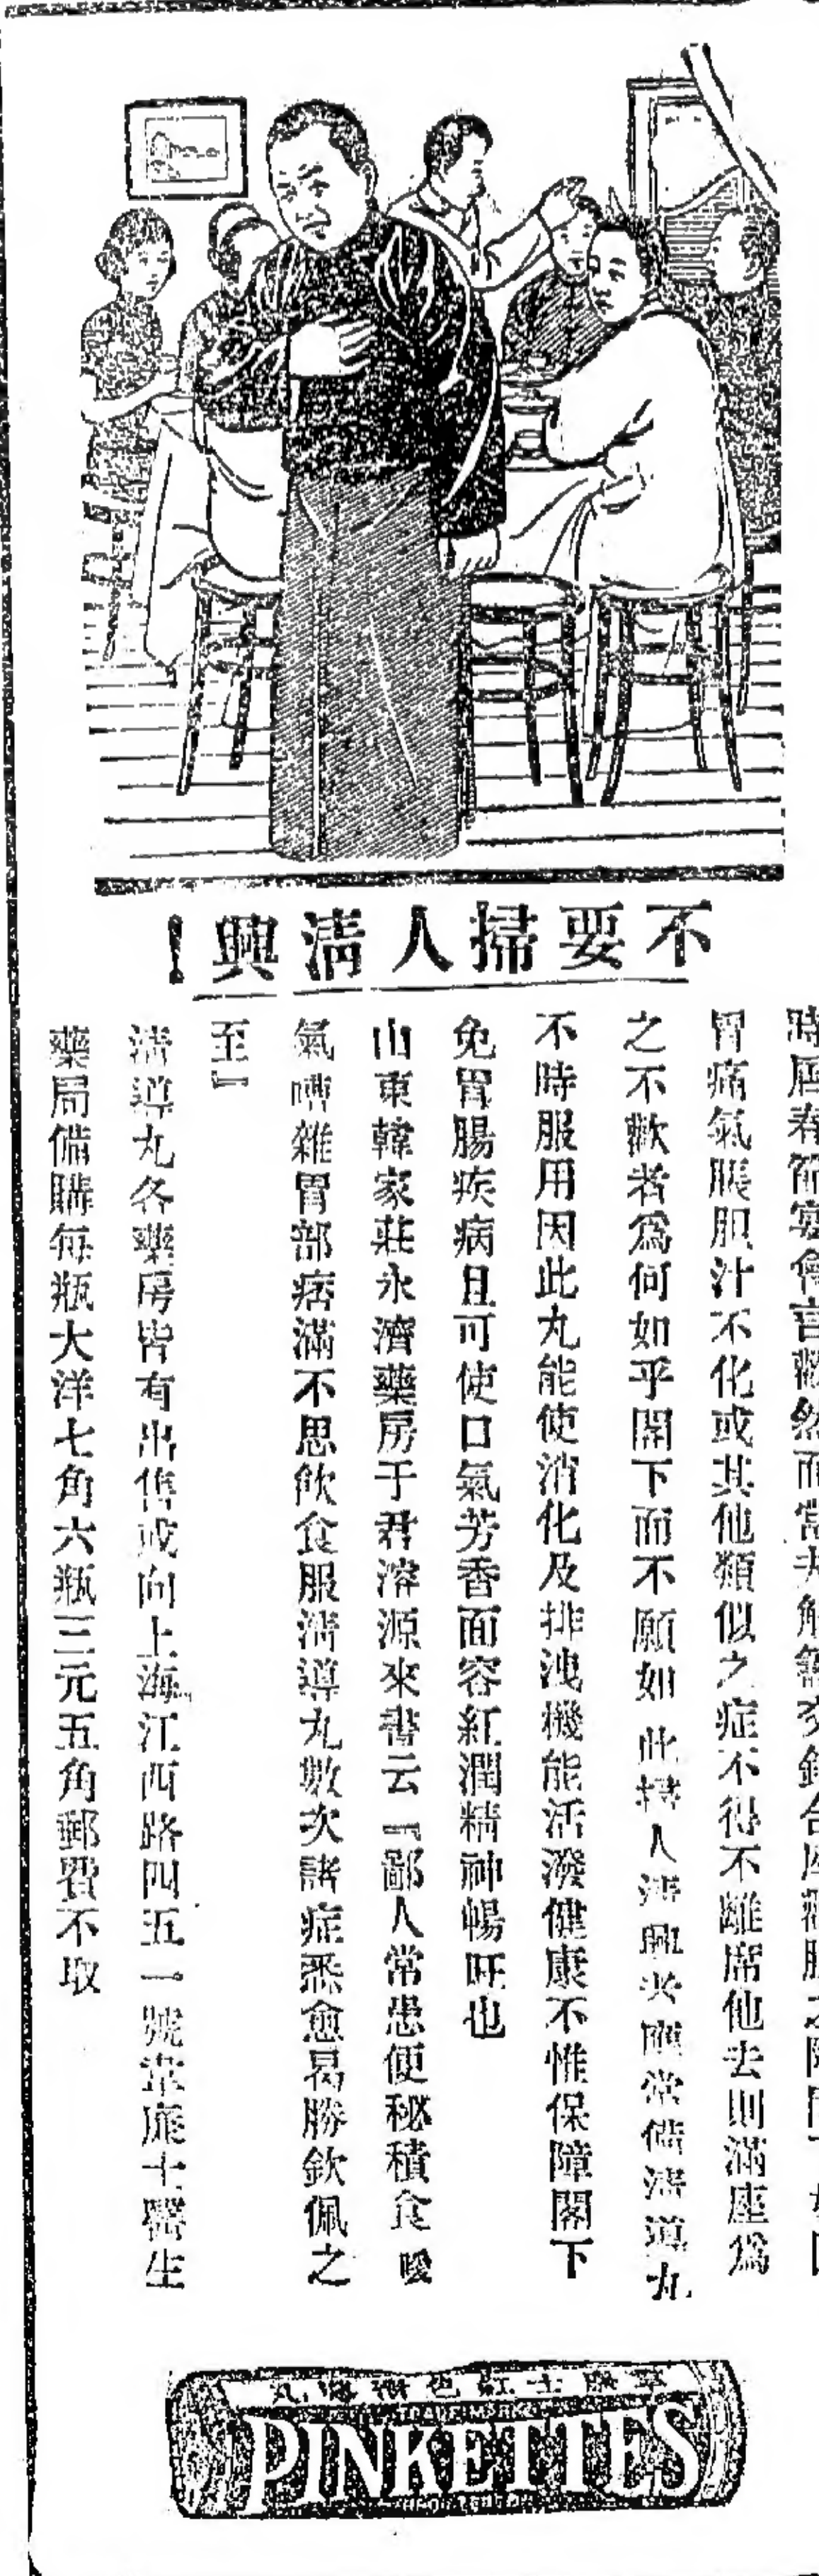 不要掃人淸興！
時屆春節宴會言歡然而常
胃痛氣脹胆汁不化或其他類似之症不得不離席他去則滿座爲
之不歡者爲何如乎閣下而不願如此掃人淸興必應常備淸導丸
不時服用因此丸能使消化及排洩機能活潑健康不惟保障閣下
免胃腸疾病且可使口氣芳香面容紅潤精神暢旺也
山東韓家莊永濟藥房于君溶源來書云『鄙人常患便秘積食噯
氣嘈雜胃部痞滿不思飮食服淸導丸數次諸症悉愈曷勝欽佩之
至』
淸導丸各藥房皆有出售或向上海江西路四五一號韋廉士醫生
藥局備購每瓶大洋七角六瓶三元五角郵費不取
韋廉士紅色淸導丸
PINKETTES